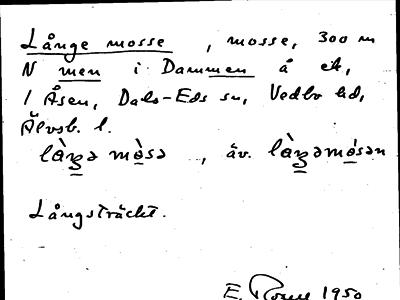 Långe mosse, mosse, 300 m
N men i Dammen å ek,
1 Åsen, Dals-Eds sn, Vedbo hd,
Älvsb. l.
là̀ŋə mòsə, äv. làŋəmòsən
Långsträckt.
E. 1950